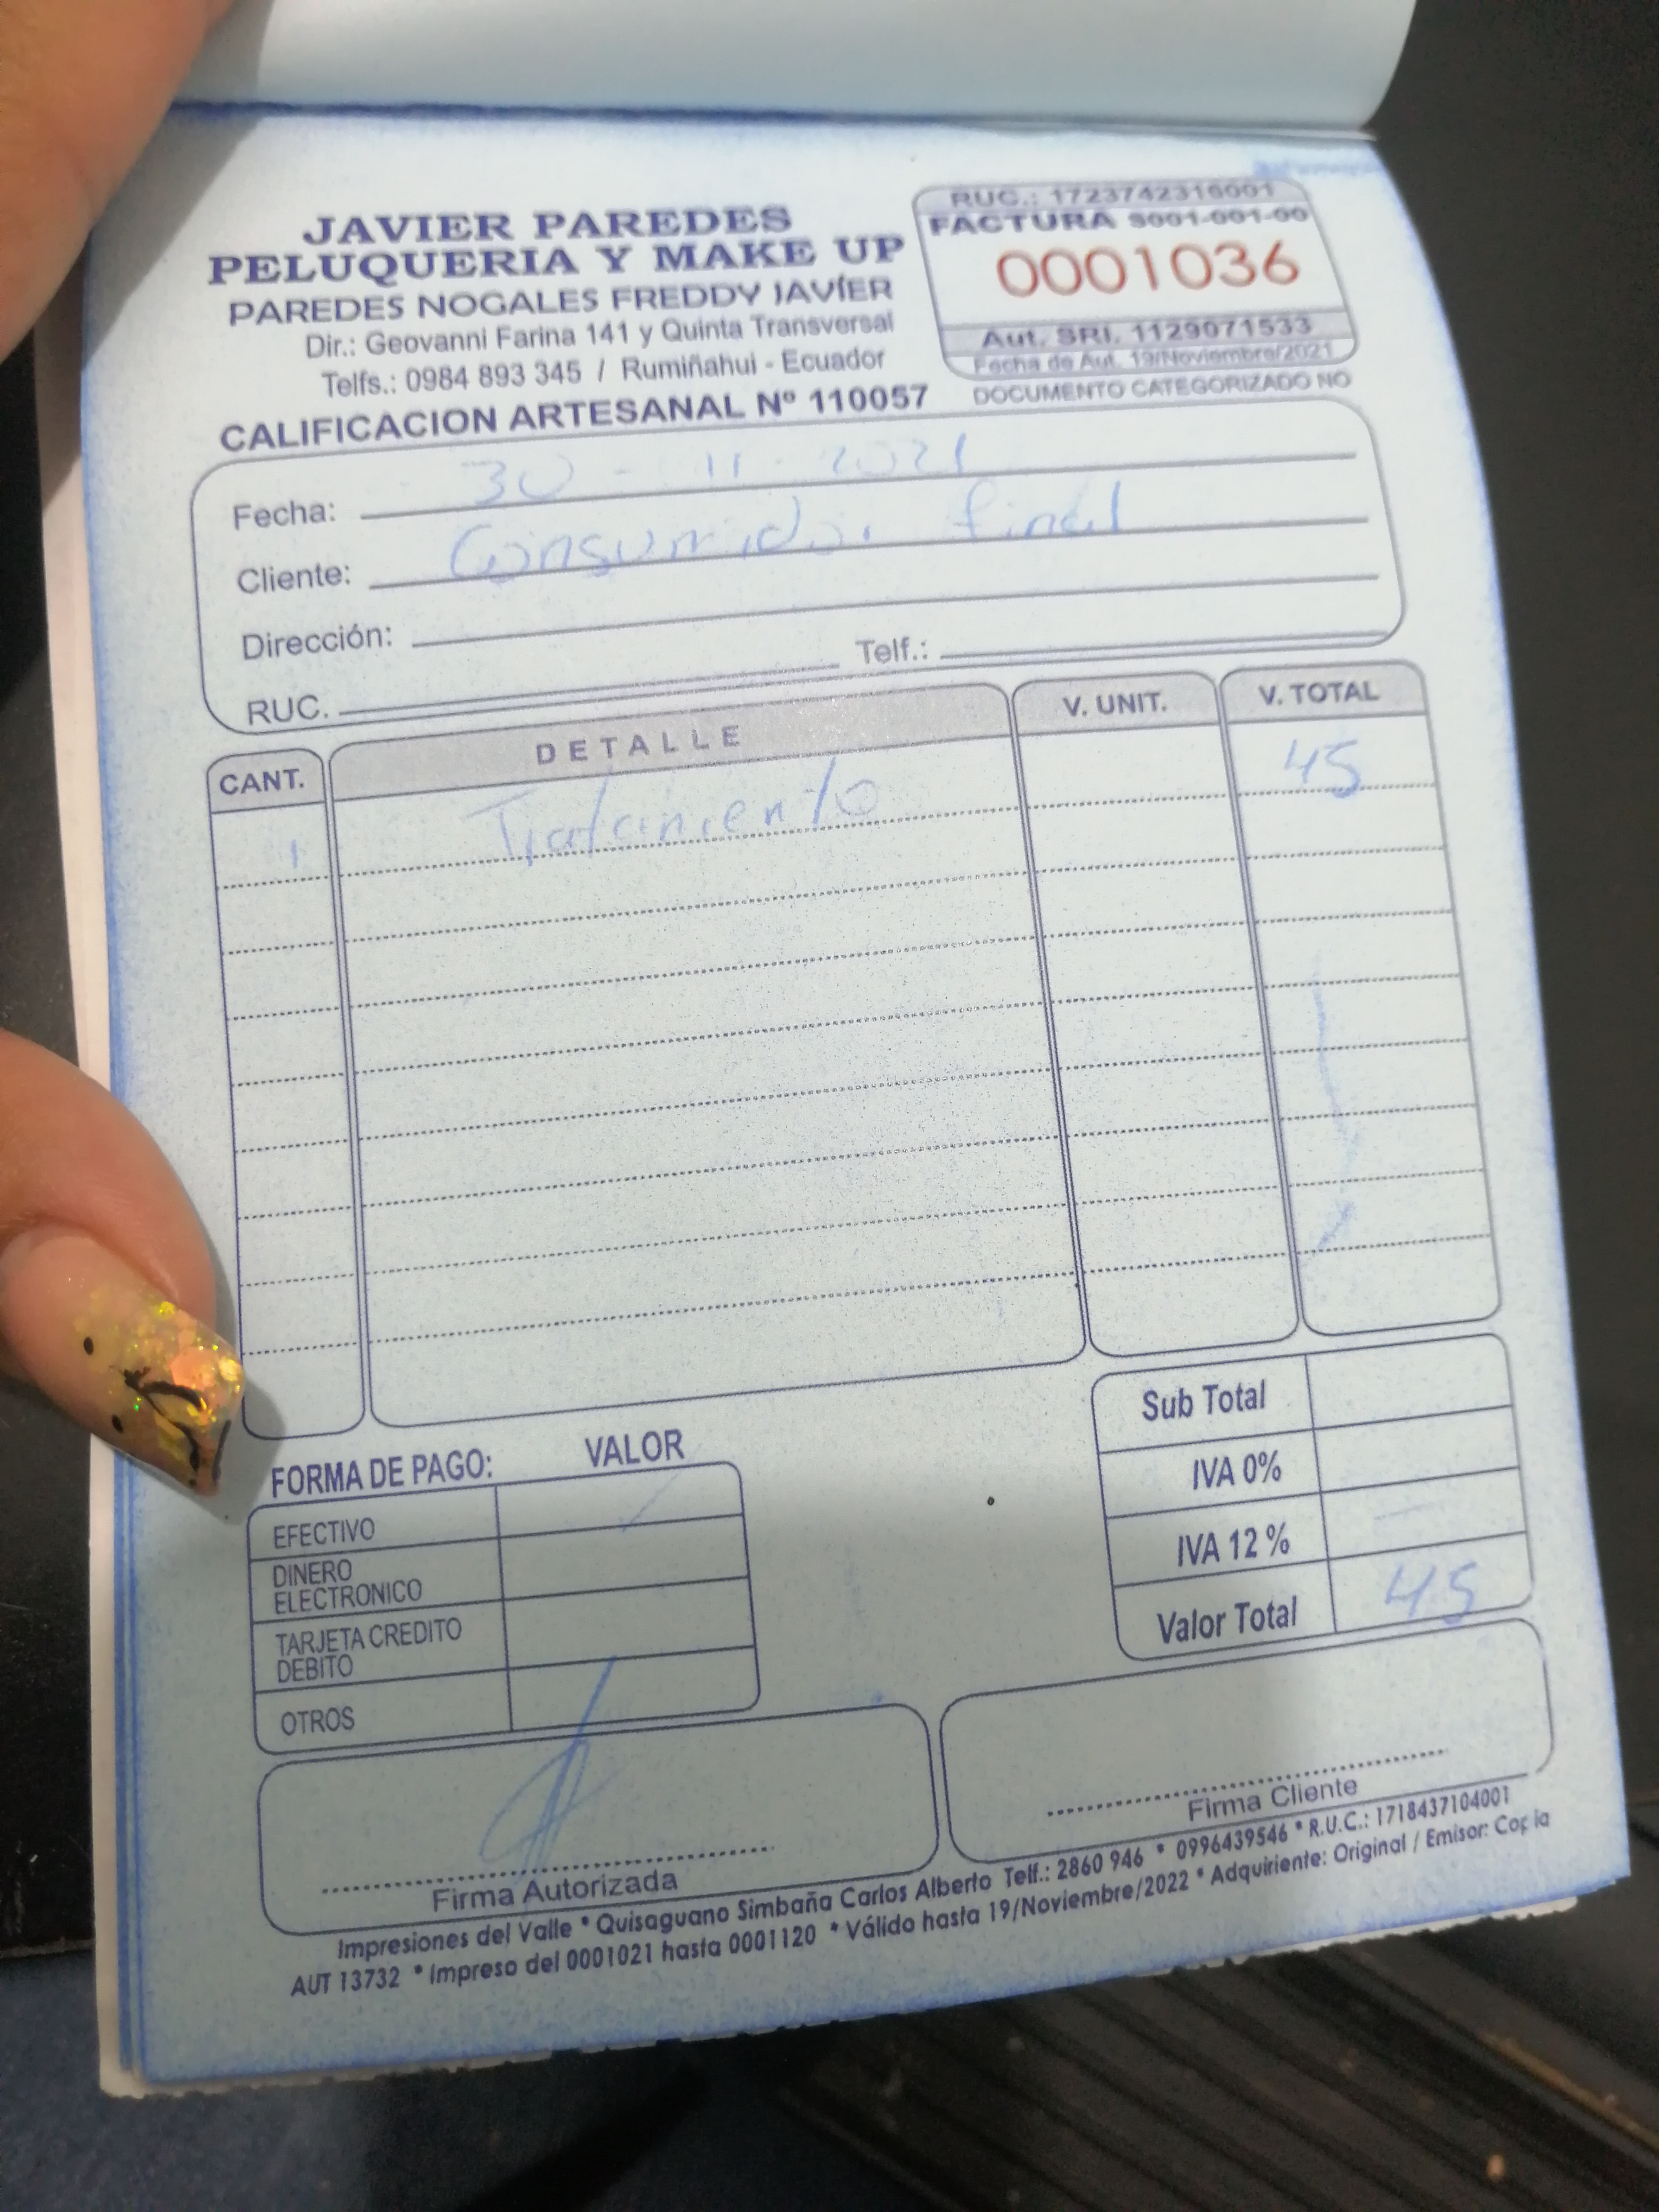 JAVIER PAREDES
PELUQUERIA Y MAKE UP
PAREDES NOGALES FREDDY JAVÍER
Dir.: Geovanni Farina 141 y Quinta Transversal
Telfs.: 0984 893 345 / Rumiñahui - Ecuador
CALIFICACION ARTESANAL Nº 110057
RUC.: 1723742316001
FACTURA S001-001-00
0001036
Aut. SRI. 1129071533
Fecha de Aut. 19/Noviembre/2021
DOCUMENTO CATEGORIZADO NO
Fecha: 30 - 11 - 2021
Cliente: Consumidor final
Dirección:
RUC. Telf.:
CANT. DETALLE V. UNIT. V. TOTAL
1 Tratamiento 45
FORMA DE PAGO: VALOR
EFECTIVO
DINERO
ELECTRONICO
TARJETA CREDITO
DEBITO
OTROS
Sub Total
IVA 0%
IVA 12 %
Valor Total 45
Firma Autorizada
Firma Cliente
Impresiones del Valle * Quisaguano Simbaña Carlos Alberto Telf.: 2860 946 * 0996439546 * R.U.C.: 1718437104001
AUT 13732 * Impreso del 0001021 hasta 0001120 * Válido hasta 19/Noviembre/2022 * Adquiriente: Original / Emisor: Copia